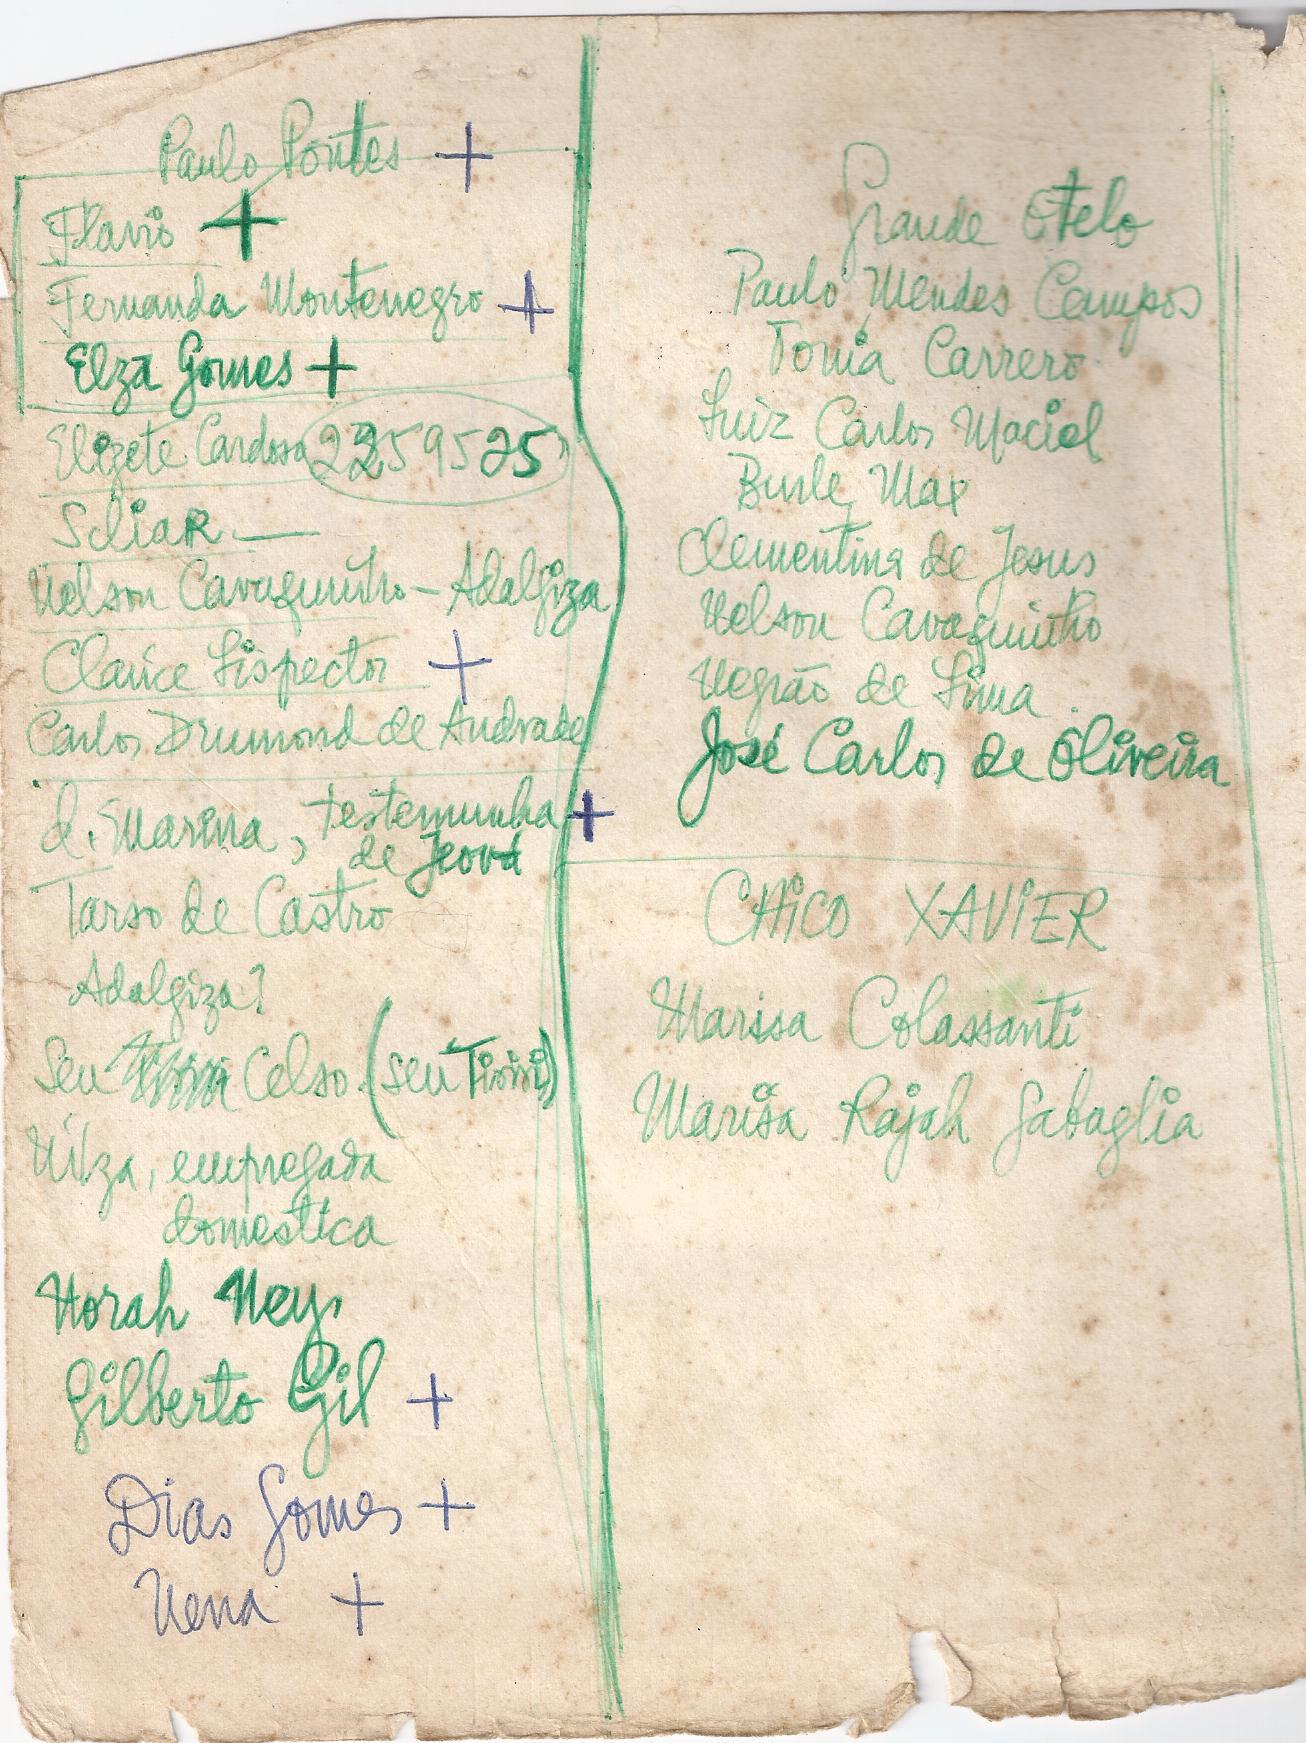 Paulo Pontes +
Flavio +
Fernanda Montenegro +
Elza Gomes +
Elizete Cardoso 2259525
Scliar —
Nelson Cavaquinho - Adalgiza
Clarice Lispector +
Carlos Drumond de Andrade
d. Marina, testemunha +
de Jeová
Tarso de Castro
Adalgiza?
Seu Celso (seu Tiririri)
Nilza, empregada
domestica
Norah Ney,
Gilberto Gil +
Dias Gomes +
Nena +
Grande Otelo
Paulo Mendes Campos
Tonia Carrero
Luiz Carlos Maciel
Burle Max
Clementina de Jesus
Nelson Cavaquinho
Negrão de Lima
José Carlos de Oliveira
CHICO XAVIER
Marisa Colassanti
Marisa Rajah Gabaglia